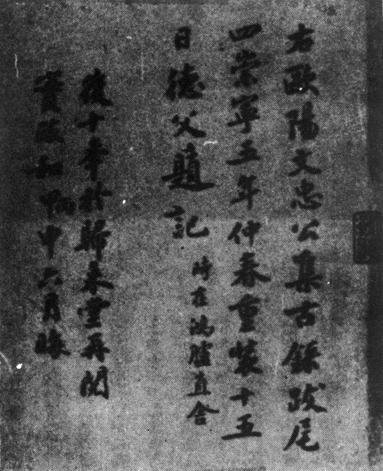 右歐陽文忠公集古錄跋尾
四崇寧五年仲春重裝十五
日德父題記
時在鴻臚直舍
後十年於歸來堂再閱
實政和丙申六月晦